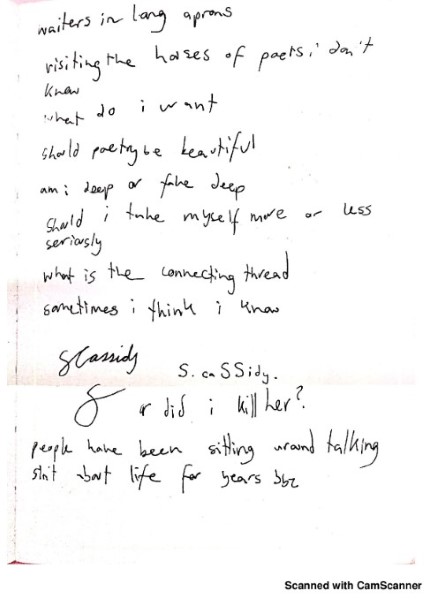 waiters in long aprons
visiting the houses of poets i don't
know
what do i want
should poetry be beautiful
am i deep or fake deep
should i take myself more or less
seriously
what is the connecting thread
sometimes i think i know
SCassidy
S. caSSidy.
or did i kill her?
people have been sitting around talking
shit about life for years bbz
Scanned with CamScanner